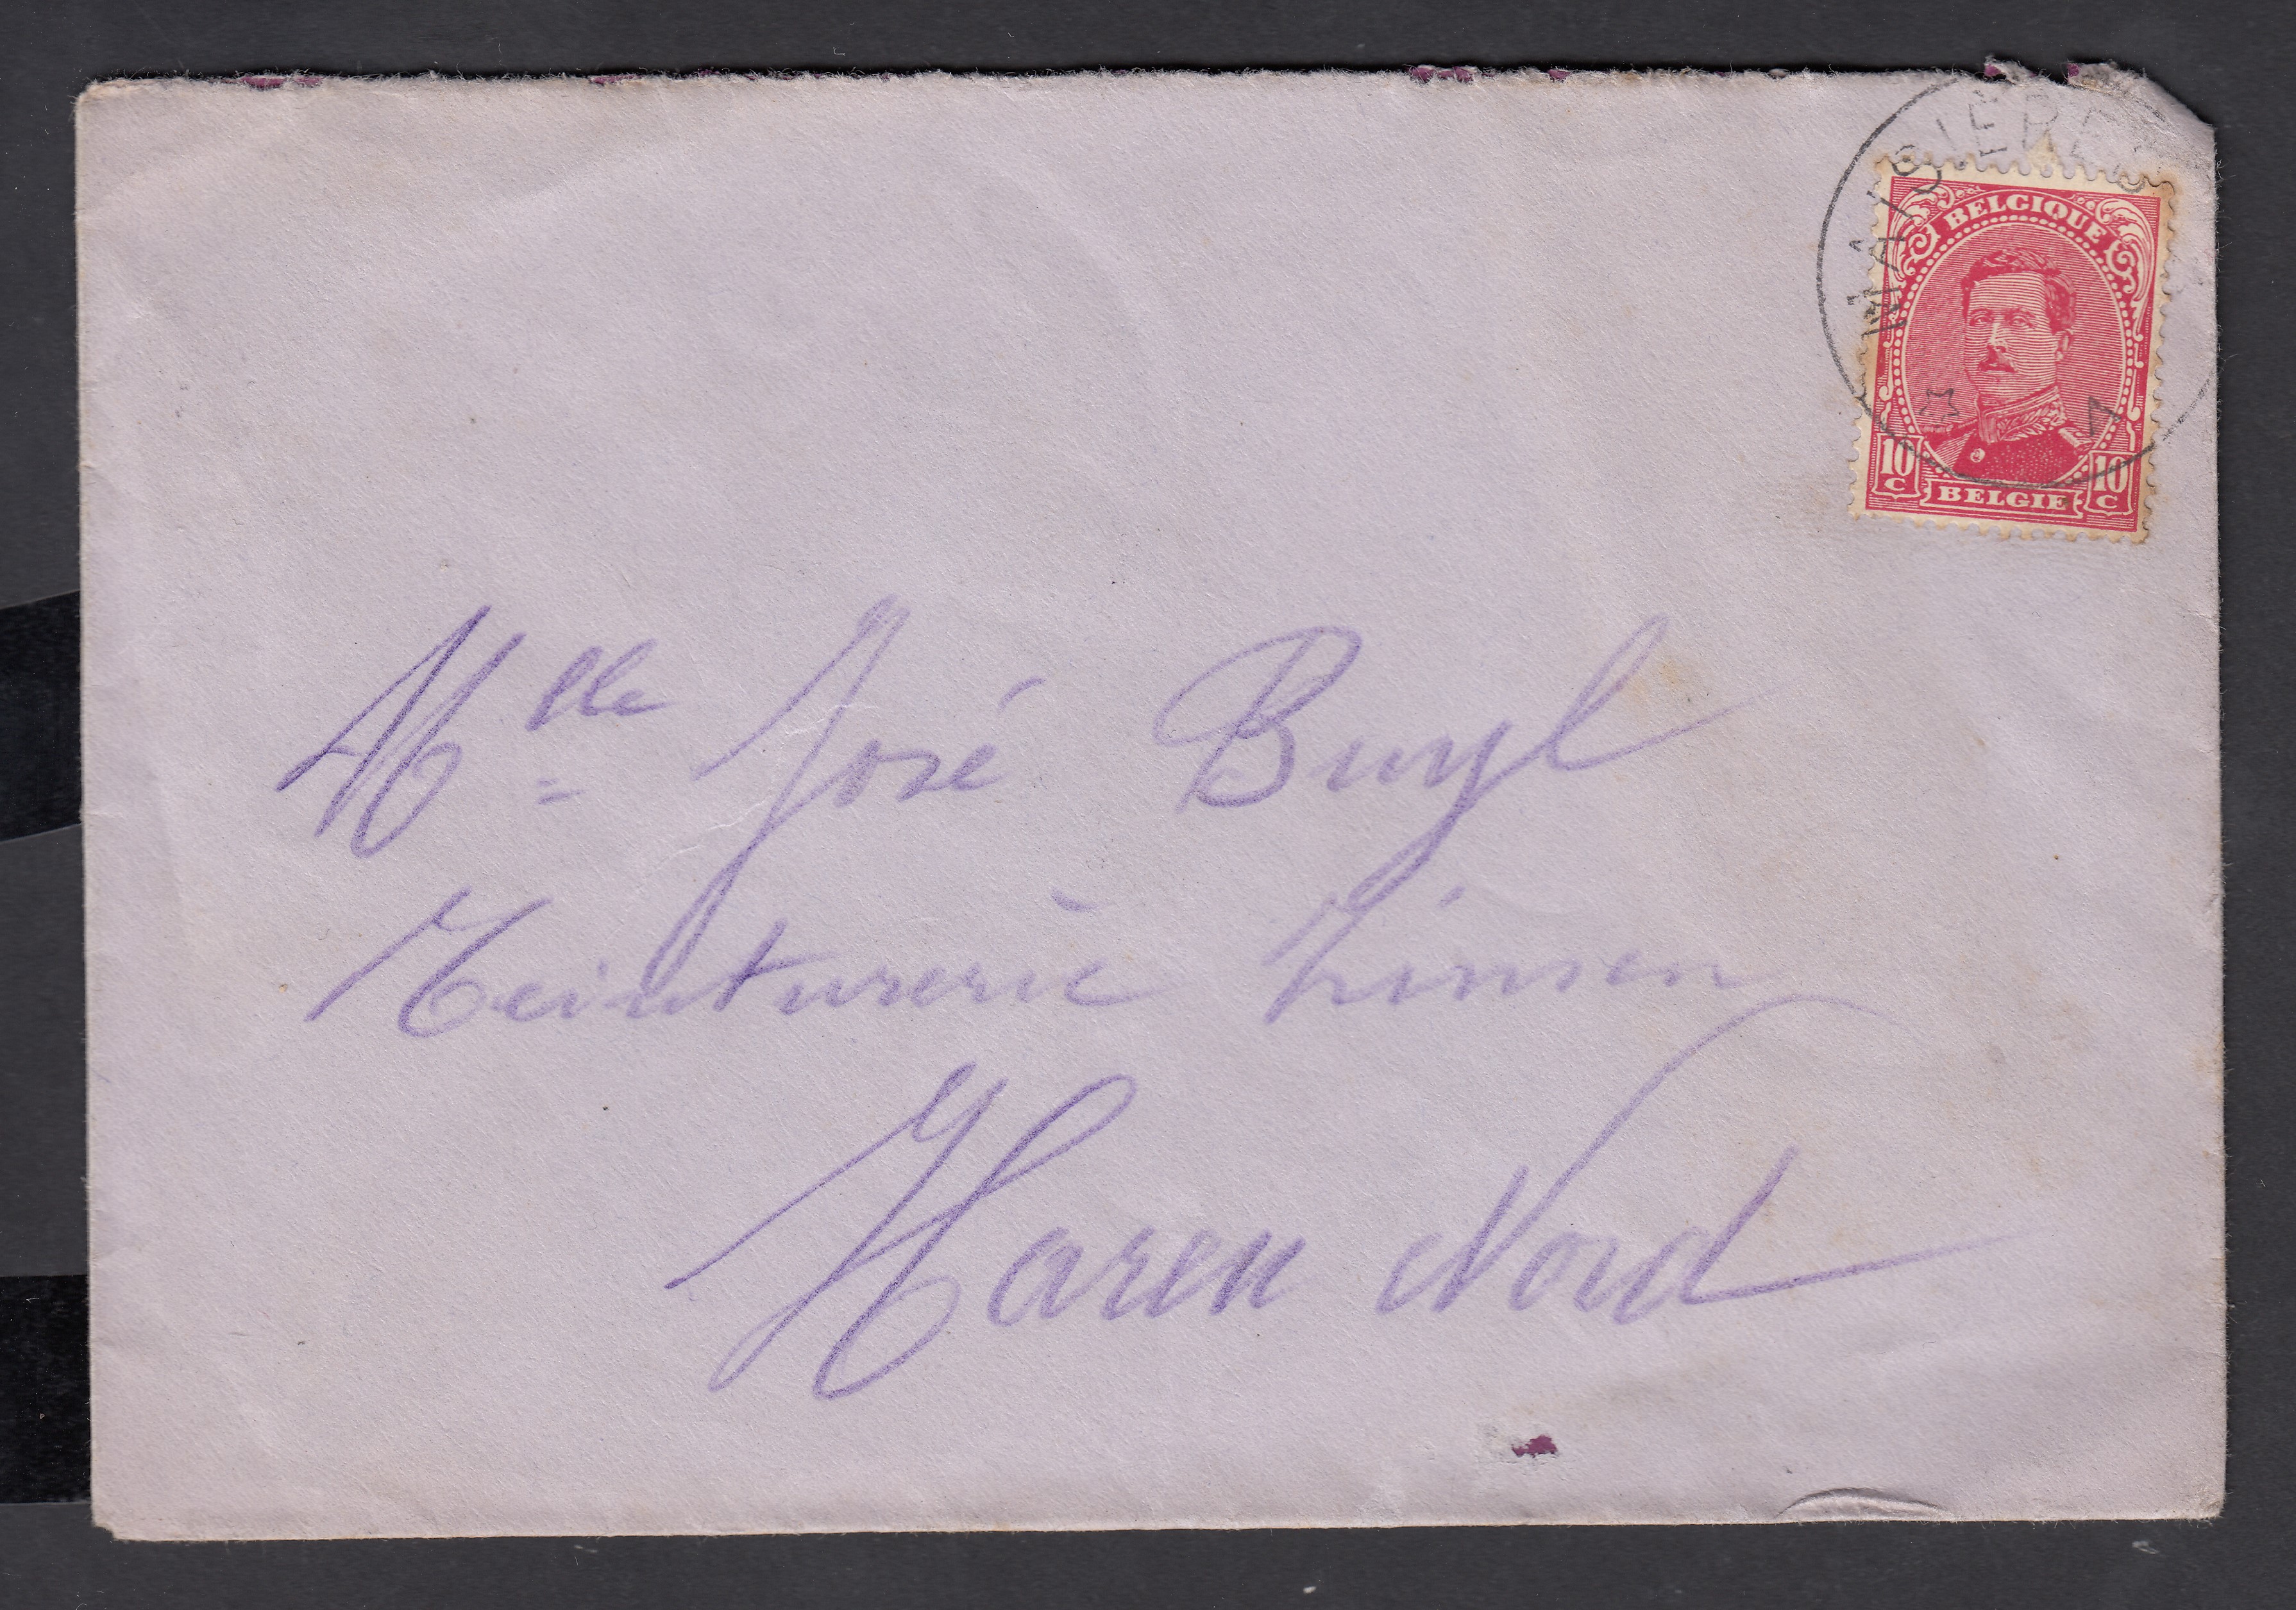 MAISIERES
BELGIQUE
10 C
BELGIE
10 C
Mlle José Buyl
Teinturerie Linsen
Haren Nord